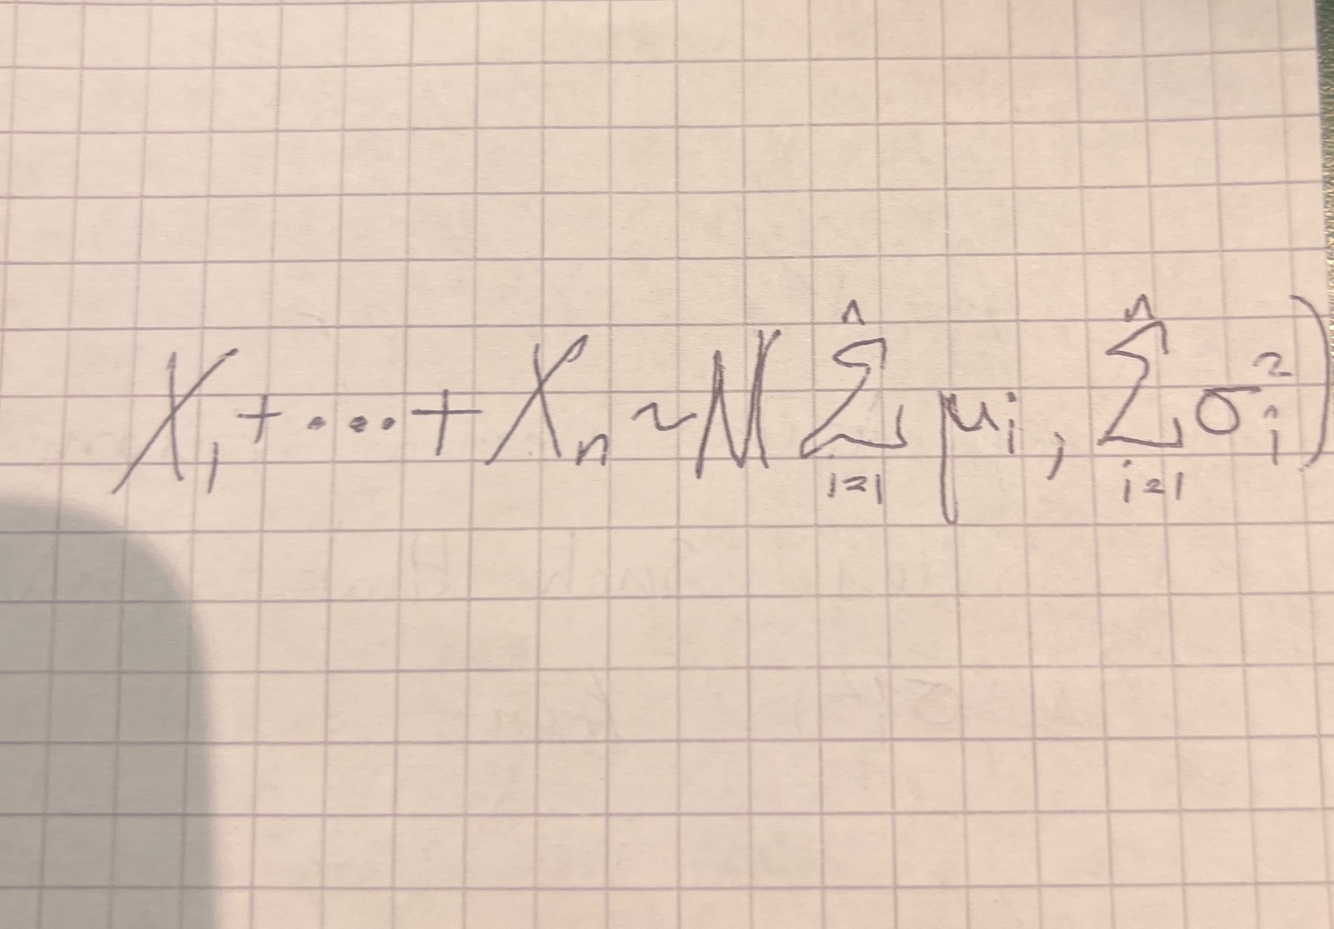 X₁ + ... + Xₙ ~ N ∑ᵢ₌₁ⁿ μᵢ, ∑ᵢ₌₁ⁿ σᵢ²)